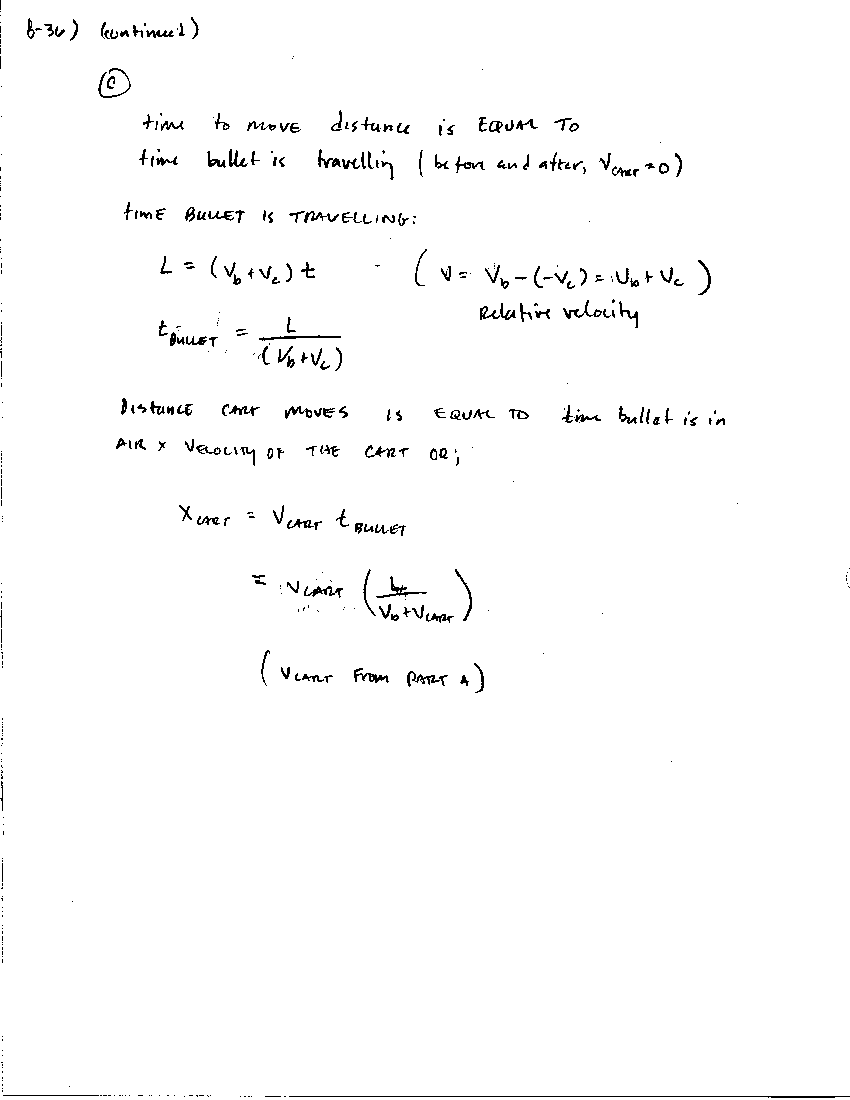 8-36) (continued)
(c)
time to MOVE distance is EQUAL TO
time bullet is travelling (before and after, VCART = 0)
TIME BULLET IS TRAVELLING:
L = (Vb + Vc) t - (V = Vb - (-Vc) = Vb + Vc)
Relative velocity
tBULLET = L / (Vb + Vc)
Distance CART MOVES IS EQUAL TO time bullet is in
AIR x VELOCITY OF THE CART OR;
XCART = VCART tBULLET
= VCART (L / Vb + VCART)
(VCART FROM PART A)